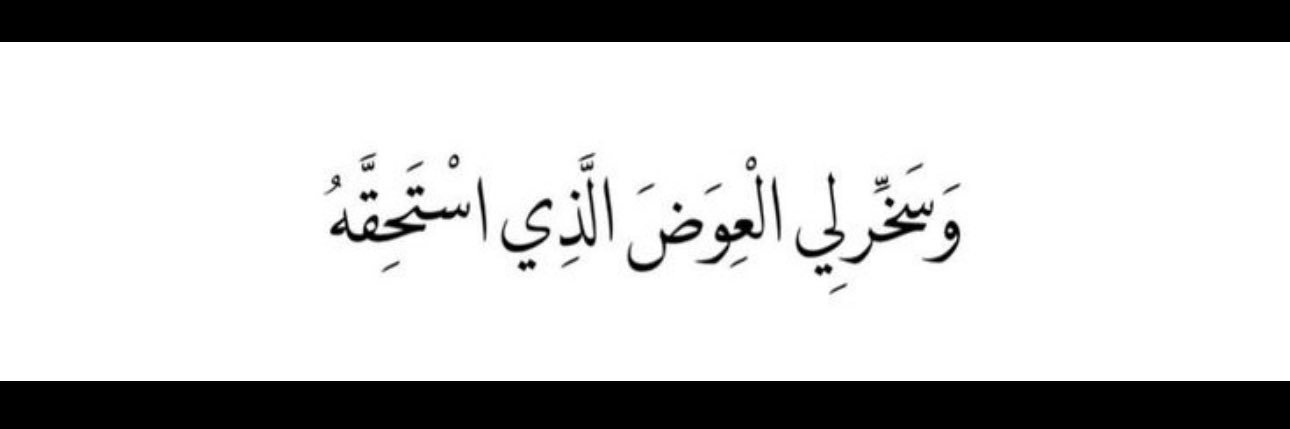 وَسَخِّر لِي الْعِوَضَ الَّذِي اسْتَحِقَّهُ